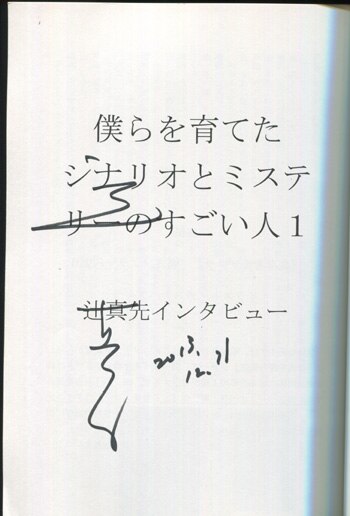 僕らを育てた
シナリオとミステ
リーのすごい人1
辻真先インタビュー
2013.
12.31